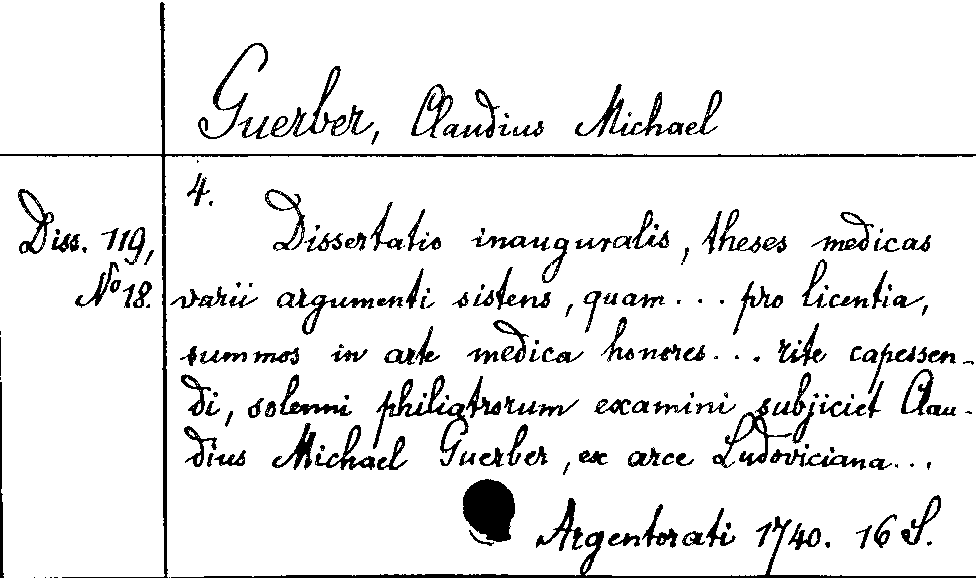 Guerber, Claudius Michael
4.
Diss. 119,
No 18.
Dissertatio inauguralis, theses medicas
varii argumenti sistens, quam... pro licentia,
summos in arte medica honores... rite capessen-
di, solenni philiatrorum examini subjiciet Clau-
dius Michael Guerber, ex arce Ludoviciana...
Argentorati 1740. 16 S.